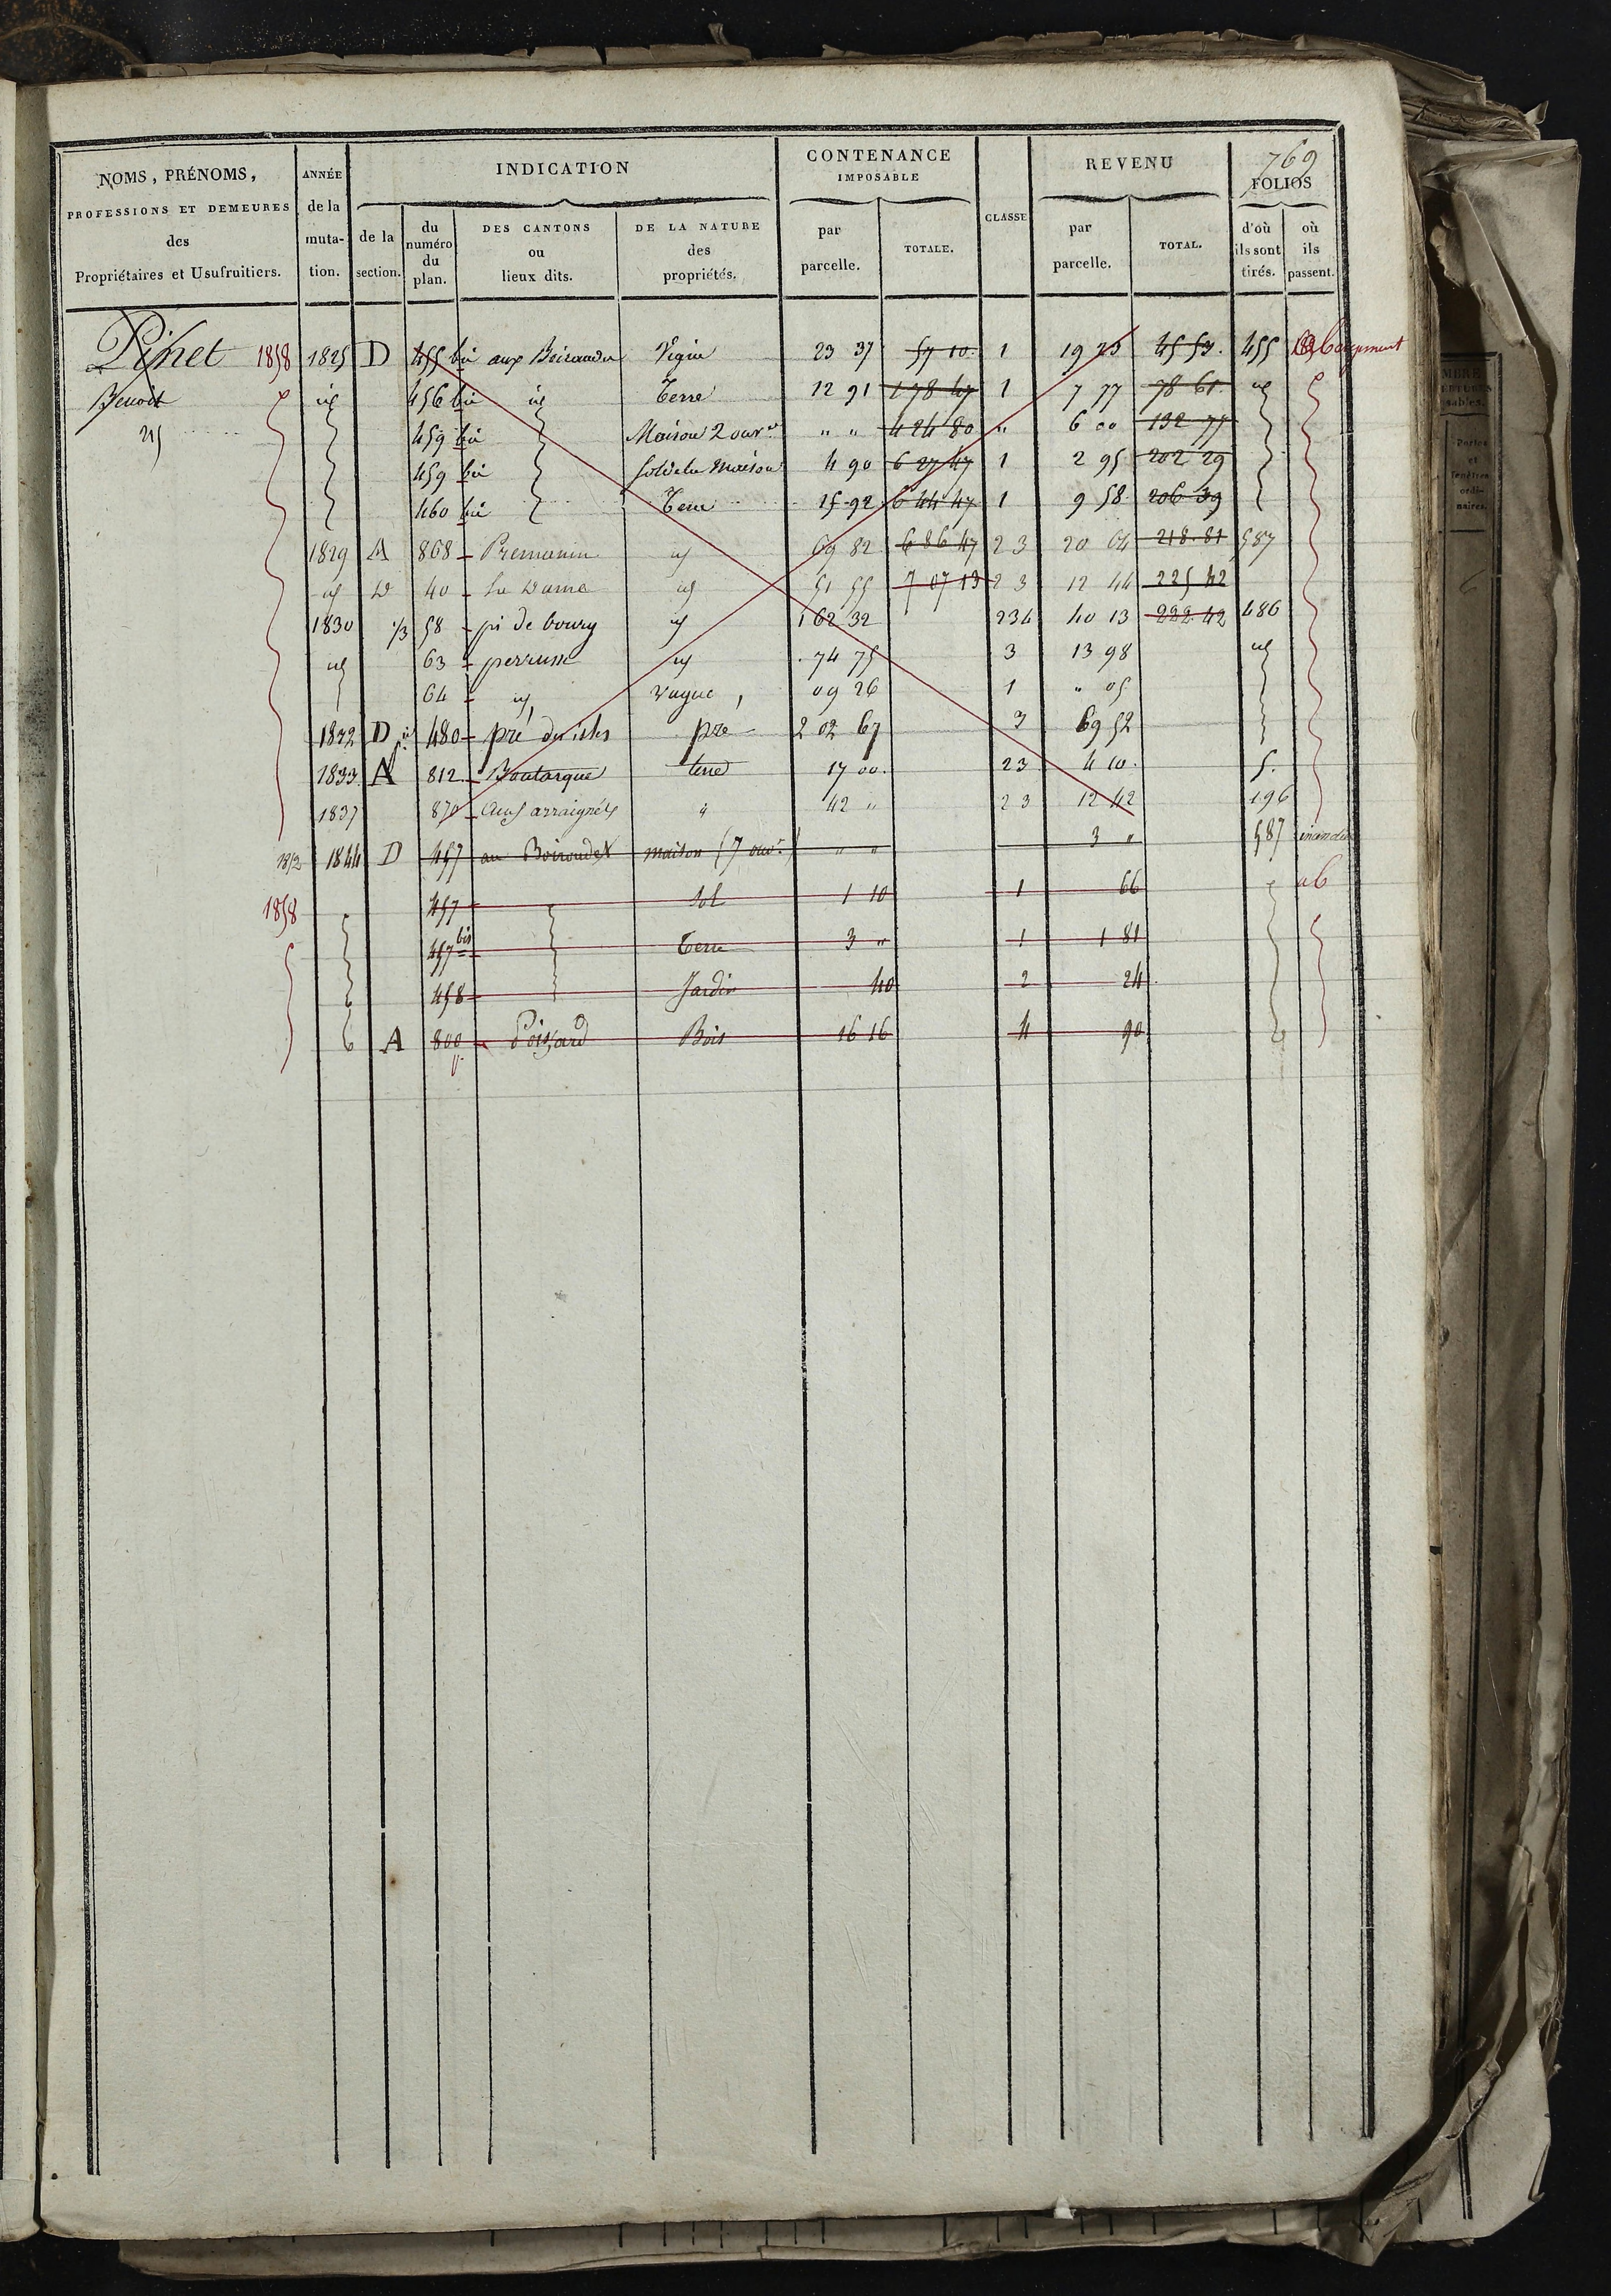 769
NOMS, PRÉNOMS, PROFESSIONS ET DEMEURES des Propriétaires et Usufruitiers.
ANNÉE de la muta- tion.
INDICATION
de la section.
du numéro du plan.
DES CANTONS ou lieux dits.
DE LA NATURE des propriétés.
CONTENANCE IMPOSABLE
par parcelle.
TOTALE.
CLASSE
REVENU
par parcelle.
TOTAL.
FOLIOS
d'où ils sont tirés.
où ils passent.
Pinet 1858 1825 D 455 bis aux Boiraudes Vigne 23 37 57 10 1 19 25 45 53 455
Benoit id 456 bis id Terre 12 91 178 47 1 7 77 78 61 id
459 bis Maison 2 ouv.res " " 424 80 " 6 00 132 77
459 bis sol de la maison 4 90 627 47 1 2 95 202 29
460 bis Terre 15 92 644 47 1 9 58 206 39
1829 A 868 Premanin id 69 82 686 47 2 3 20 64 218 81 587
id D 40 La Dame id 51 55 707 13 2 3 12 44 225 42
1830 1/3 58 pi de bourg id 1 62 32 234 40 13 222 42 486
id 63 perrusse id 74 75 3 13 98 id
64 id vague 09 26 1 " 05
1832 D 480 pré des isles pre 2 02 67 3 69 52
1833 A 812 Boutarque terre 17 00 23 4 10 5.
1837 870 aux arraignés " 42 " 2 3 12 42 196
1852 1844 D 457 au Boiroudes maison (7 ouv.) " " 3 " 587 incendie
1858 457 sol 1 10 1 66
457 bis Terre 3 " 1 1 81
458 Jardin 40 2 24
A 800 Poizard Bois 16 16 4 90